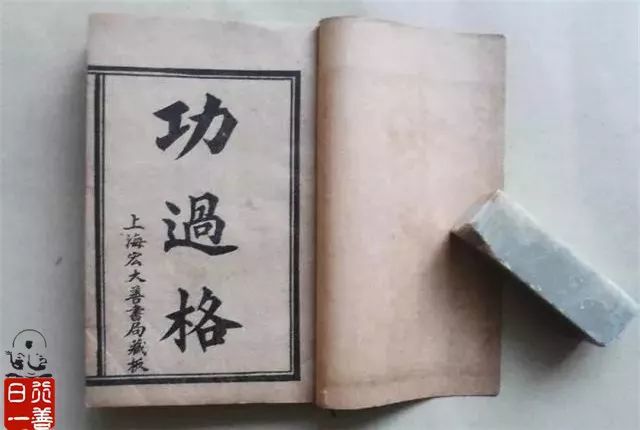 功過格
上海宏大善書局藏板
日行一善